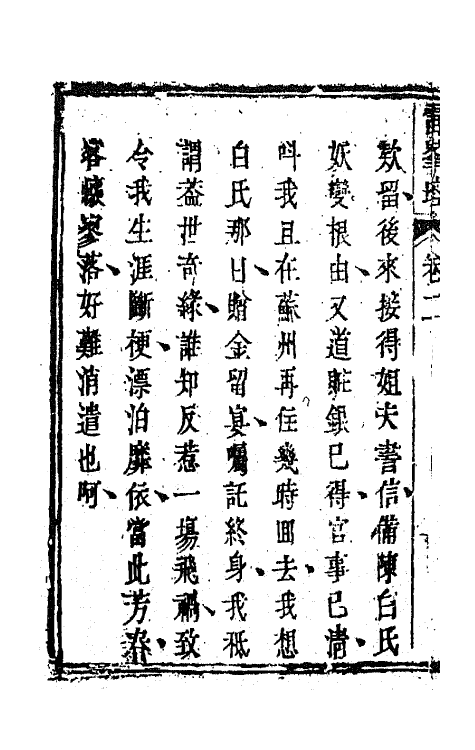 雷峯塔 卷二
欵留後來接得姐夫書信備陳白氏
妖變根由又道賍銀已得官事已清
呌我且在蘇州再住幾時囬去我想
白氏那日贈金留宴囑託終身我秪
謂葢世奇緣誰知反惹一塲飛禍致
令我生涯斷梗漂泊靡依當此芳春
客懷寥落好難消遣也呵